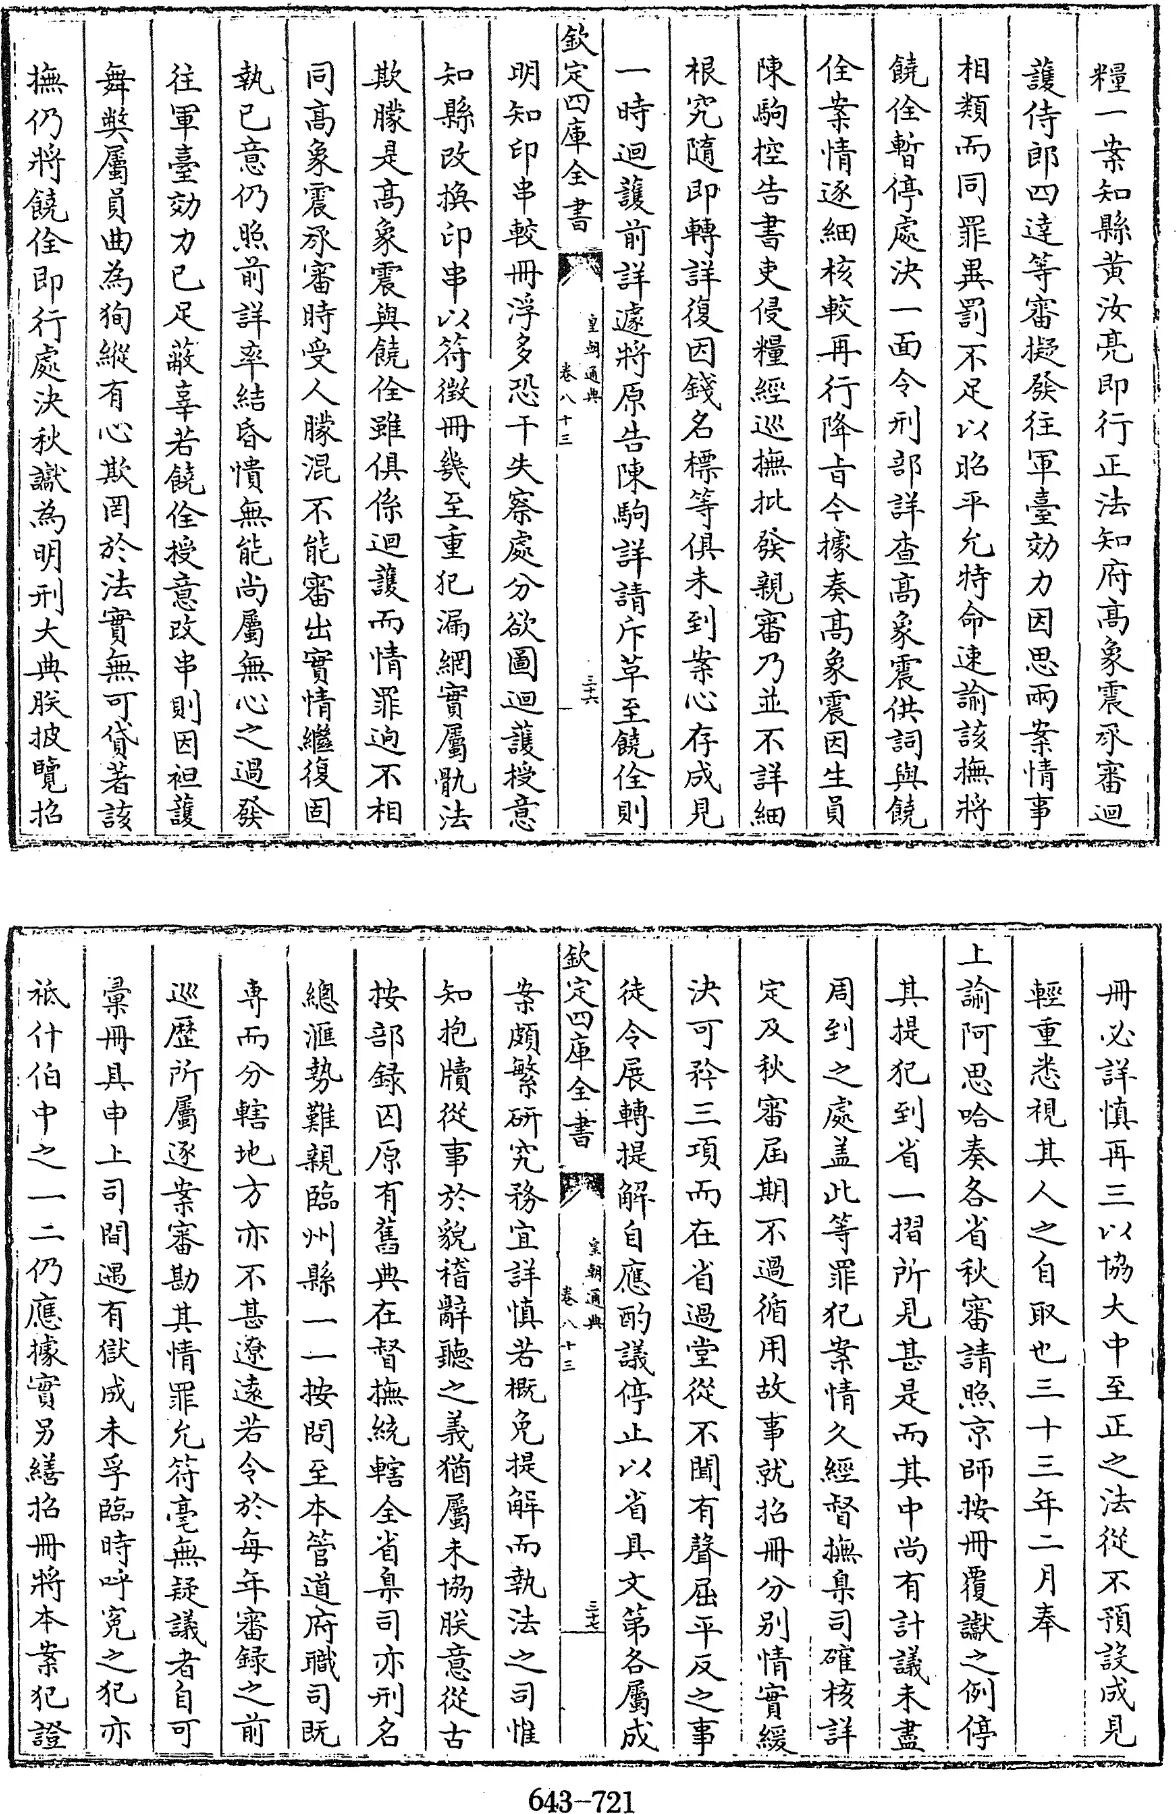 糧一案知縣黄汝亮即行正法知府髙象震承審迴
護侍郎四達等審擬發往軍臺効力因思兩案情事
相類而同罪異罰不足以昭平允特命速諭該撫將
饒佺暫停處決一面令刑部詳查髙象震供詞與饒
佺案情逐細核較再行降旨今據奏髙象震因生員
陳駒控告書吏侵糧經巡撫批發親審乃並不詳細
根究隨即轉詳復因錢名標等俱未到案心存成見
一時迴護前詳遽將原告陳駒詳請斥革至饒佺則
欽定四庫全書
皇朝通典
卷八十三
三十六
明知印串較冊浮多恐干失察處分欲圖迴護授意
知縣改換印串以符徵冊幾至重犯漏網實屬骩法
欺朦是髙象震與饒佺雖俱係迴護而情罪逈不相
同髙象震承審時受人朦混不能審出實情繼復固
執已意仍照前詳率結昏憒無能尚屬無心之過發
往軍臺効力已足蔽辜若饒佺授意改串則因袒護
舞獘屬員曲為狥縱有心欺罔於法實無可貸著該
撫仍將饒佺即行處決秋讞為明刑大典朕披覽招
冊必詳慎再三以協大中至正之法從不預設成見
輕重悉視其人之自取也三十三年二月奉
上諭阿思哈奏各省秋審請照京師按冊覆讞之例停
其提犯到省一摺所見甚是而其中尚有計議未盡
周到之處盖此等罪犯案情久經督撫臬司確核詳
定及秋審屆期不過循用故事就招冊分别情實緩
決可矜三項而在省過堂從不聞有聲屈平反之事
徒令展轉提解自應酌議停止以省具文第各屬成
欽定四庫全書
皇朝通典
卷八十三
三十七
案頗繁研究務宜詳慎若概免提解而執法之司惟
知抱牘從事於貌稽辭聽之義猶屬未協朕意從古
按部録囚原有舊典在督撫統轄全省臬司亦刑名
總滙勢難親臨州縣一一按問至本管道府職司既
専而分轄地方亦不甚遼遠若令於每年審録之前
巡歴所屬逐案審勘其情罪允符毫無疑議者自可
彙冊具申上司間遇有獄成未孚臨時呼寃之犯亦
祗什伯中之一二仍應據實另繕招冊將本案犯證
643-721